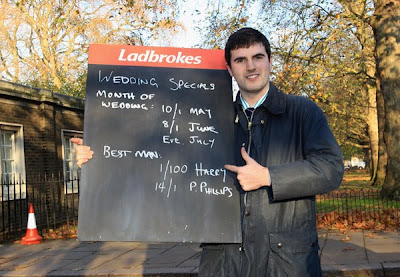 Ladbrokes
WEDDING SPECIALS
MONTH OF
WEDDING: 10/1 MAY
8/1 JUNE
EVE. JULY
BEST MAN:
1/100 HARRY
14/1 P. PHILLIPS